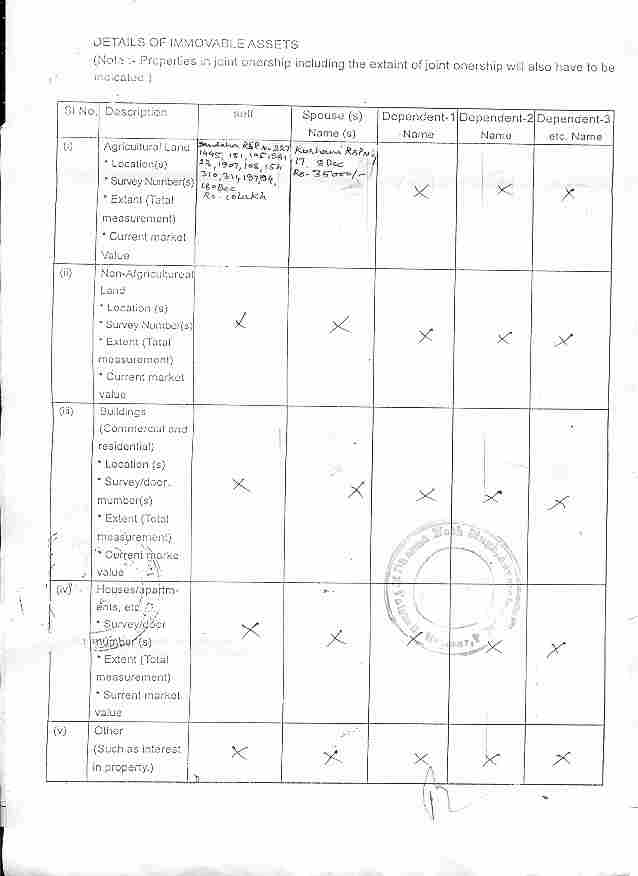 DETAILS OF IMMOVABLE ASSETS
(Note :- Properties in joint onership including the extaint of joint onership will also have to be
indicated )
Sl No. Description self Spouse (s) Dependent-1 Dependent-2 Dependent-3
Name (s) Name Name etc. Name
(i) Agricultural Land
* Location(s)
* Survey Number(s)
* Extant (Total
measurement)
* Current market
Value
RSP No. 227
1445, 151,
22, 1907, 108, 154
310, 311, 197,
180 Dec
Rs-
RSP No
17. 8 Dec
Rs- 35000/-
X X X
(ii) Non-Afgricultureal
Land
* Location (s)
* Survey Number(s)
* Extent (Total
measurement)
* Current market
value
X X X X X
(iii) Buildings
(Commercial and
residential)
* Location (s)
* Survey/door.
mumber(s)
* Extent (Total
measurement)
* Current marke
value
X X X X X
(iv) Houses/apartm-
ents, etc.
* Survey/door
number (s)
* Extent (Total
measurement)
* Surrent market
value
X X X X X
(v) Other
(Such as interest
in property.)
X X X X X